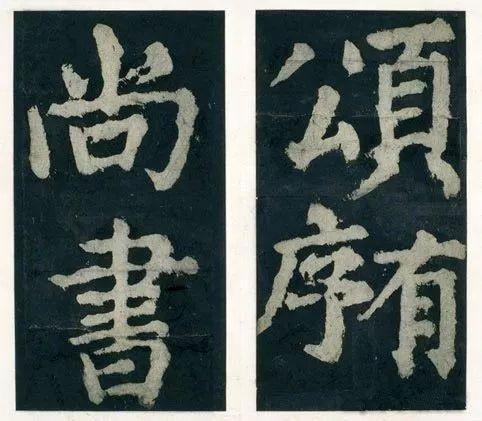 頌有序
尚書